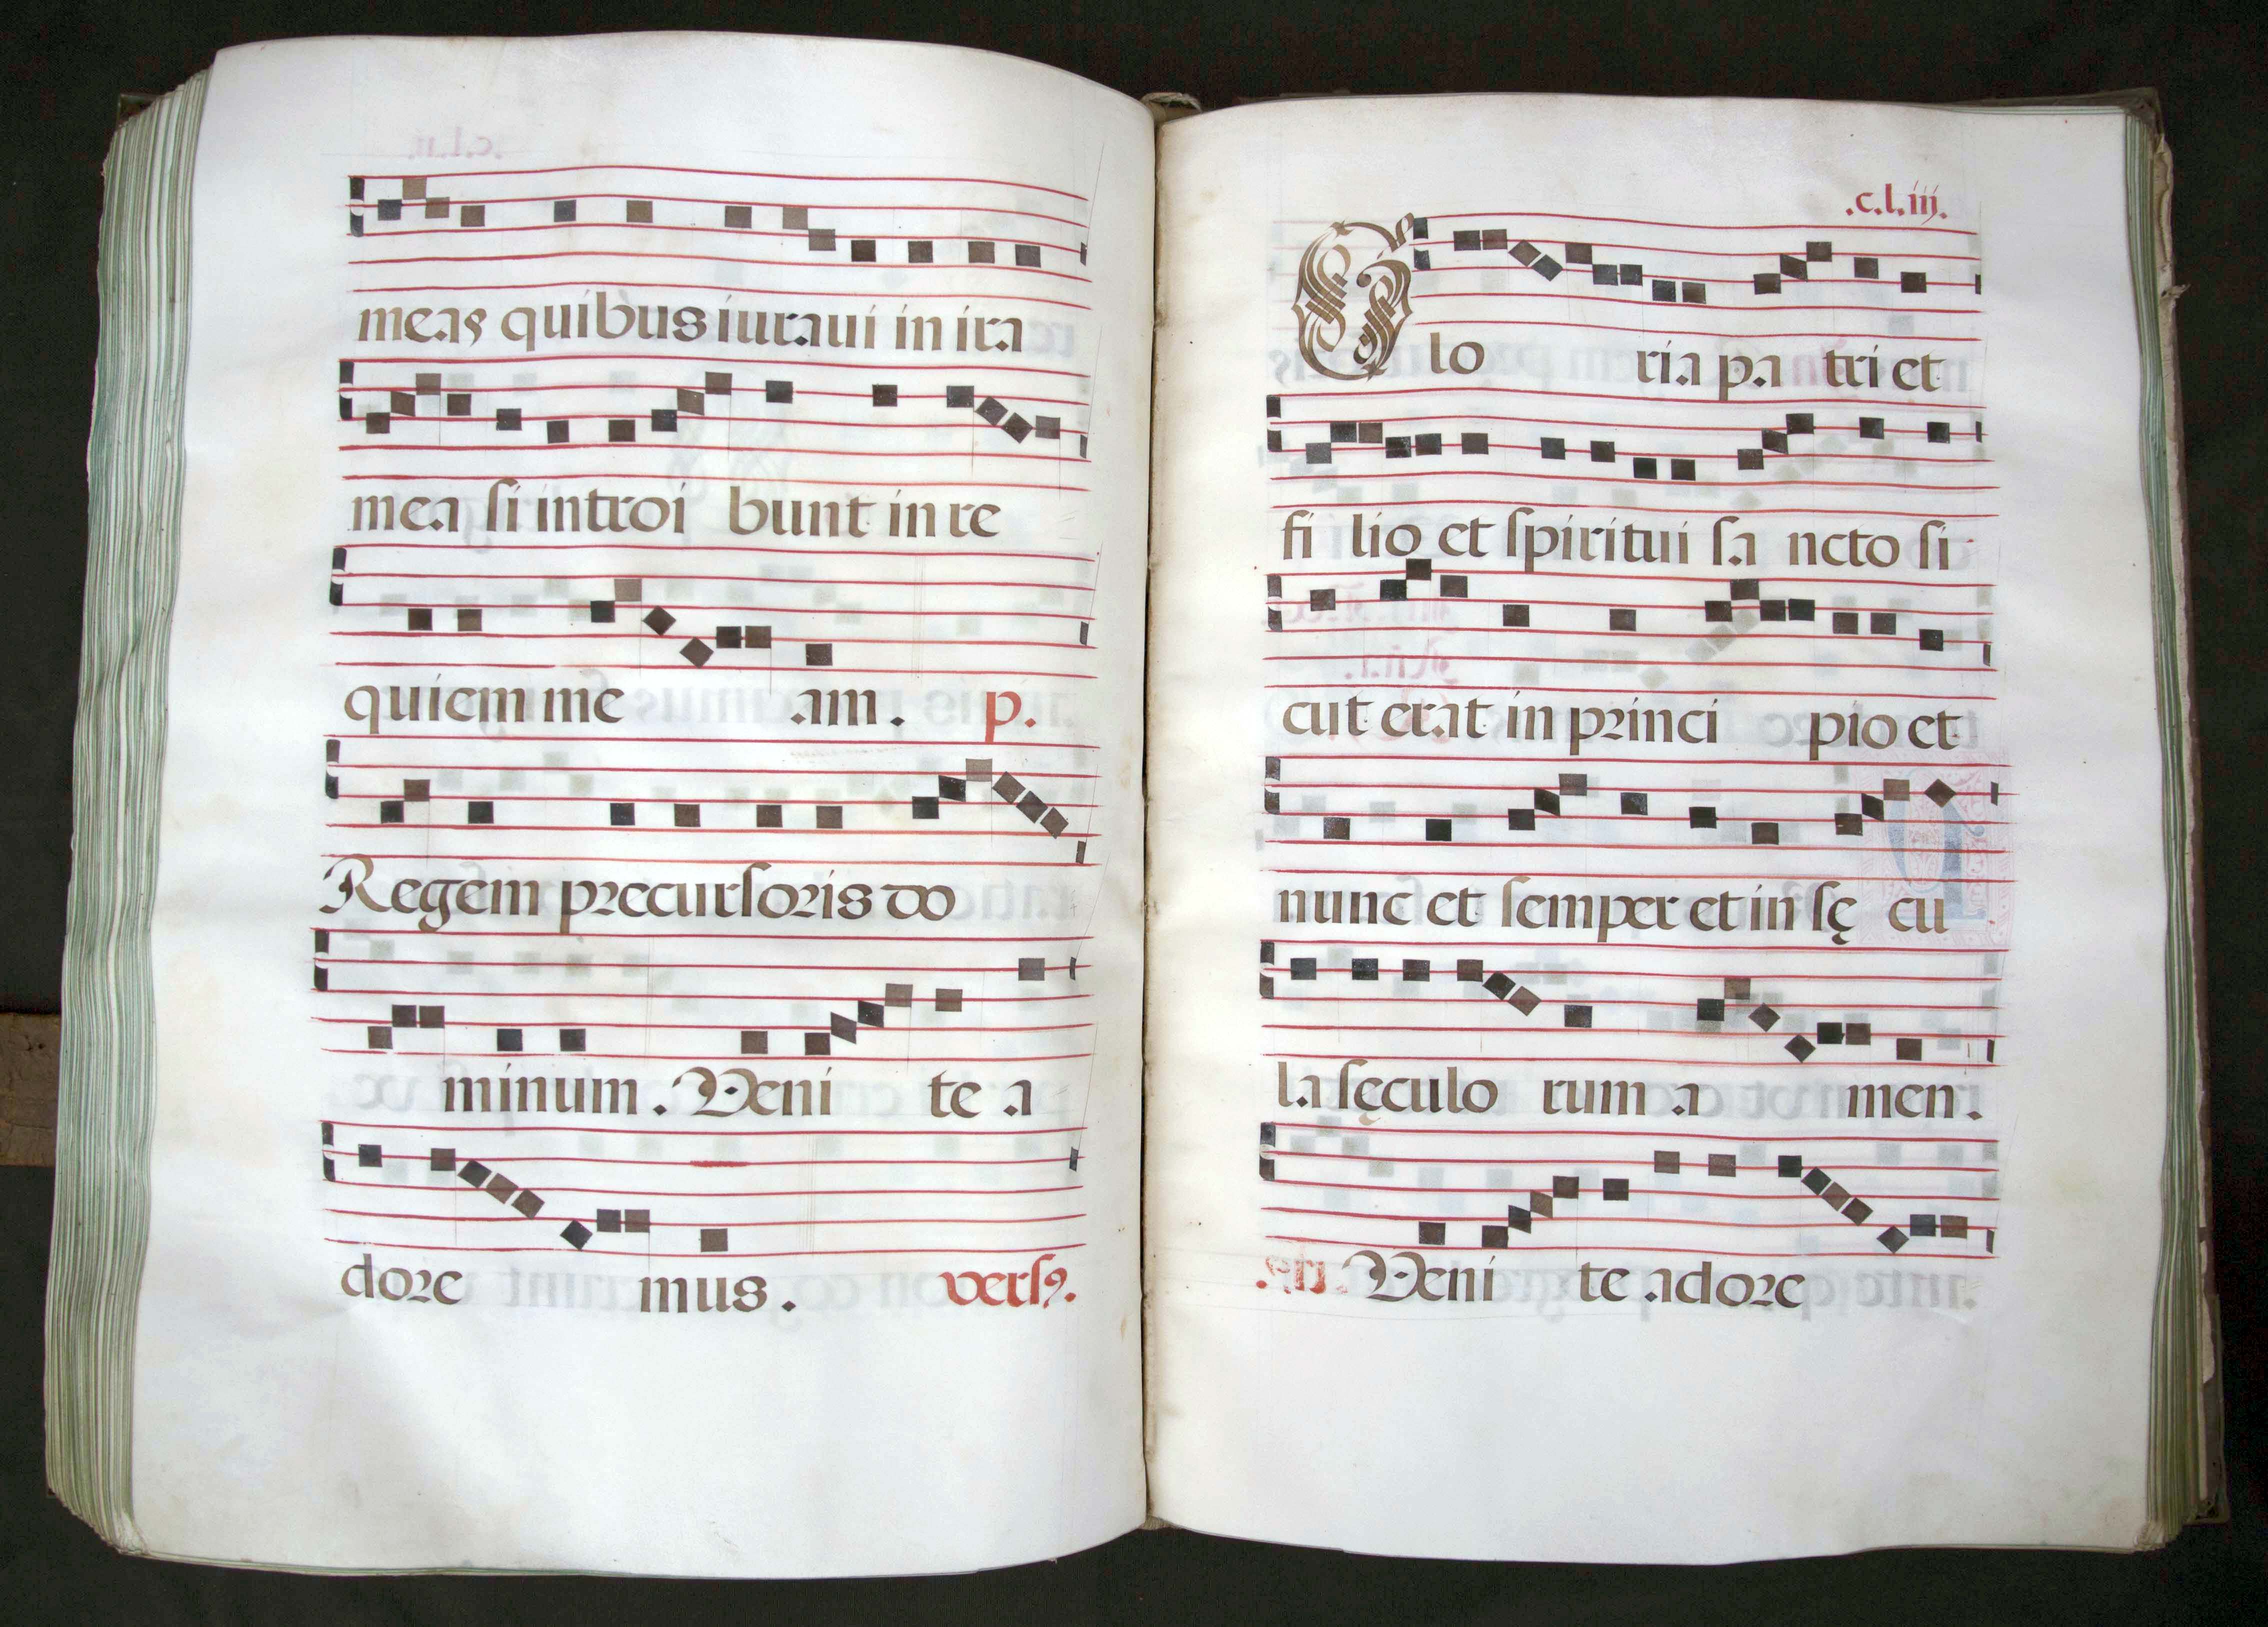 meas quibus iuraui in ira
mea si introi bunt in re
quiem me am. p.
Regem precursoris do
minum. Veni te a
dore mus. vers9.
.c.l.iij.
Glo ria pa tri et
fi lio et spiritui sa ncto si
cut erat in princi pio et
nunc et semper et in sę cu
la sęculo rum a men.
Veni te adore